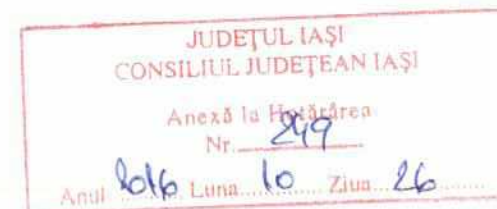 JUDEŢUL IAŞI
CONSILIUL JUDEŢEAN IAŞI
Anexă la Hotărârea
Nr. 249
Anul 2016 Luna 10 Ziua 26